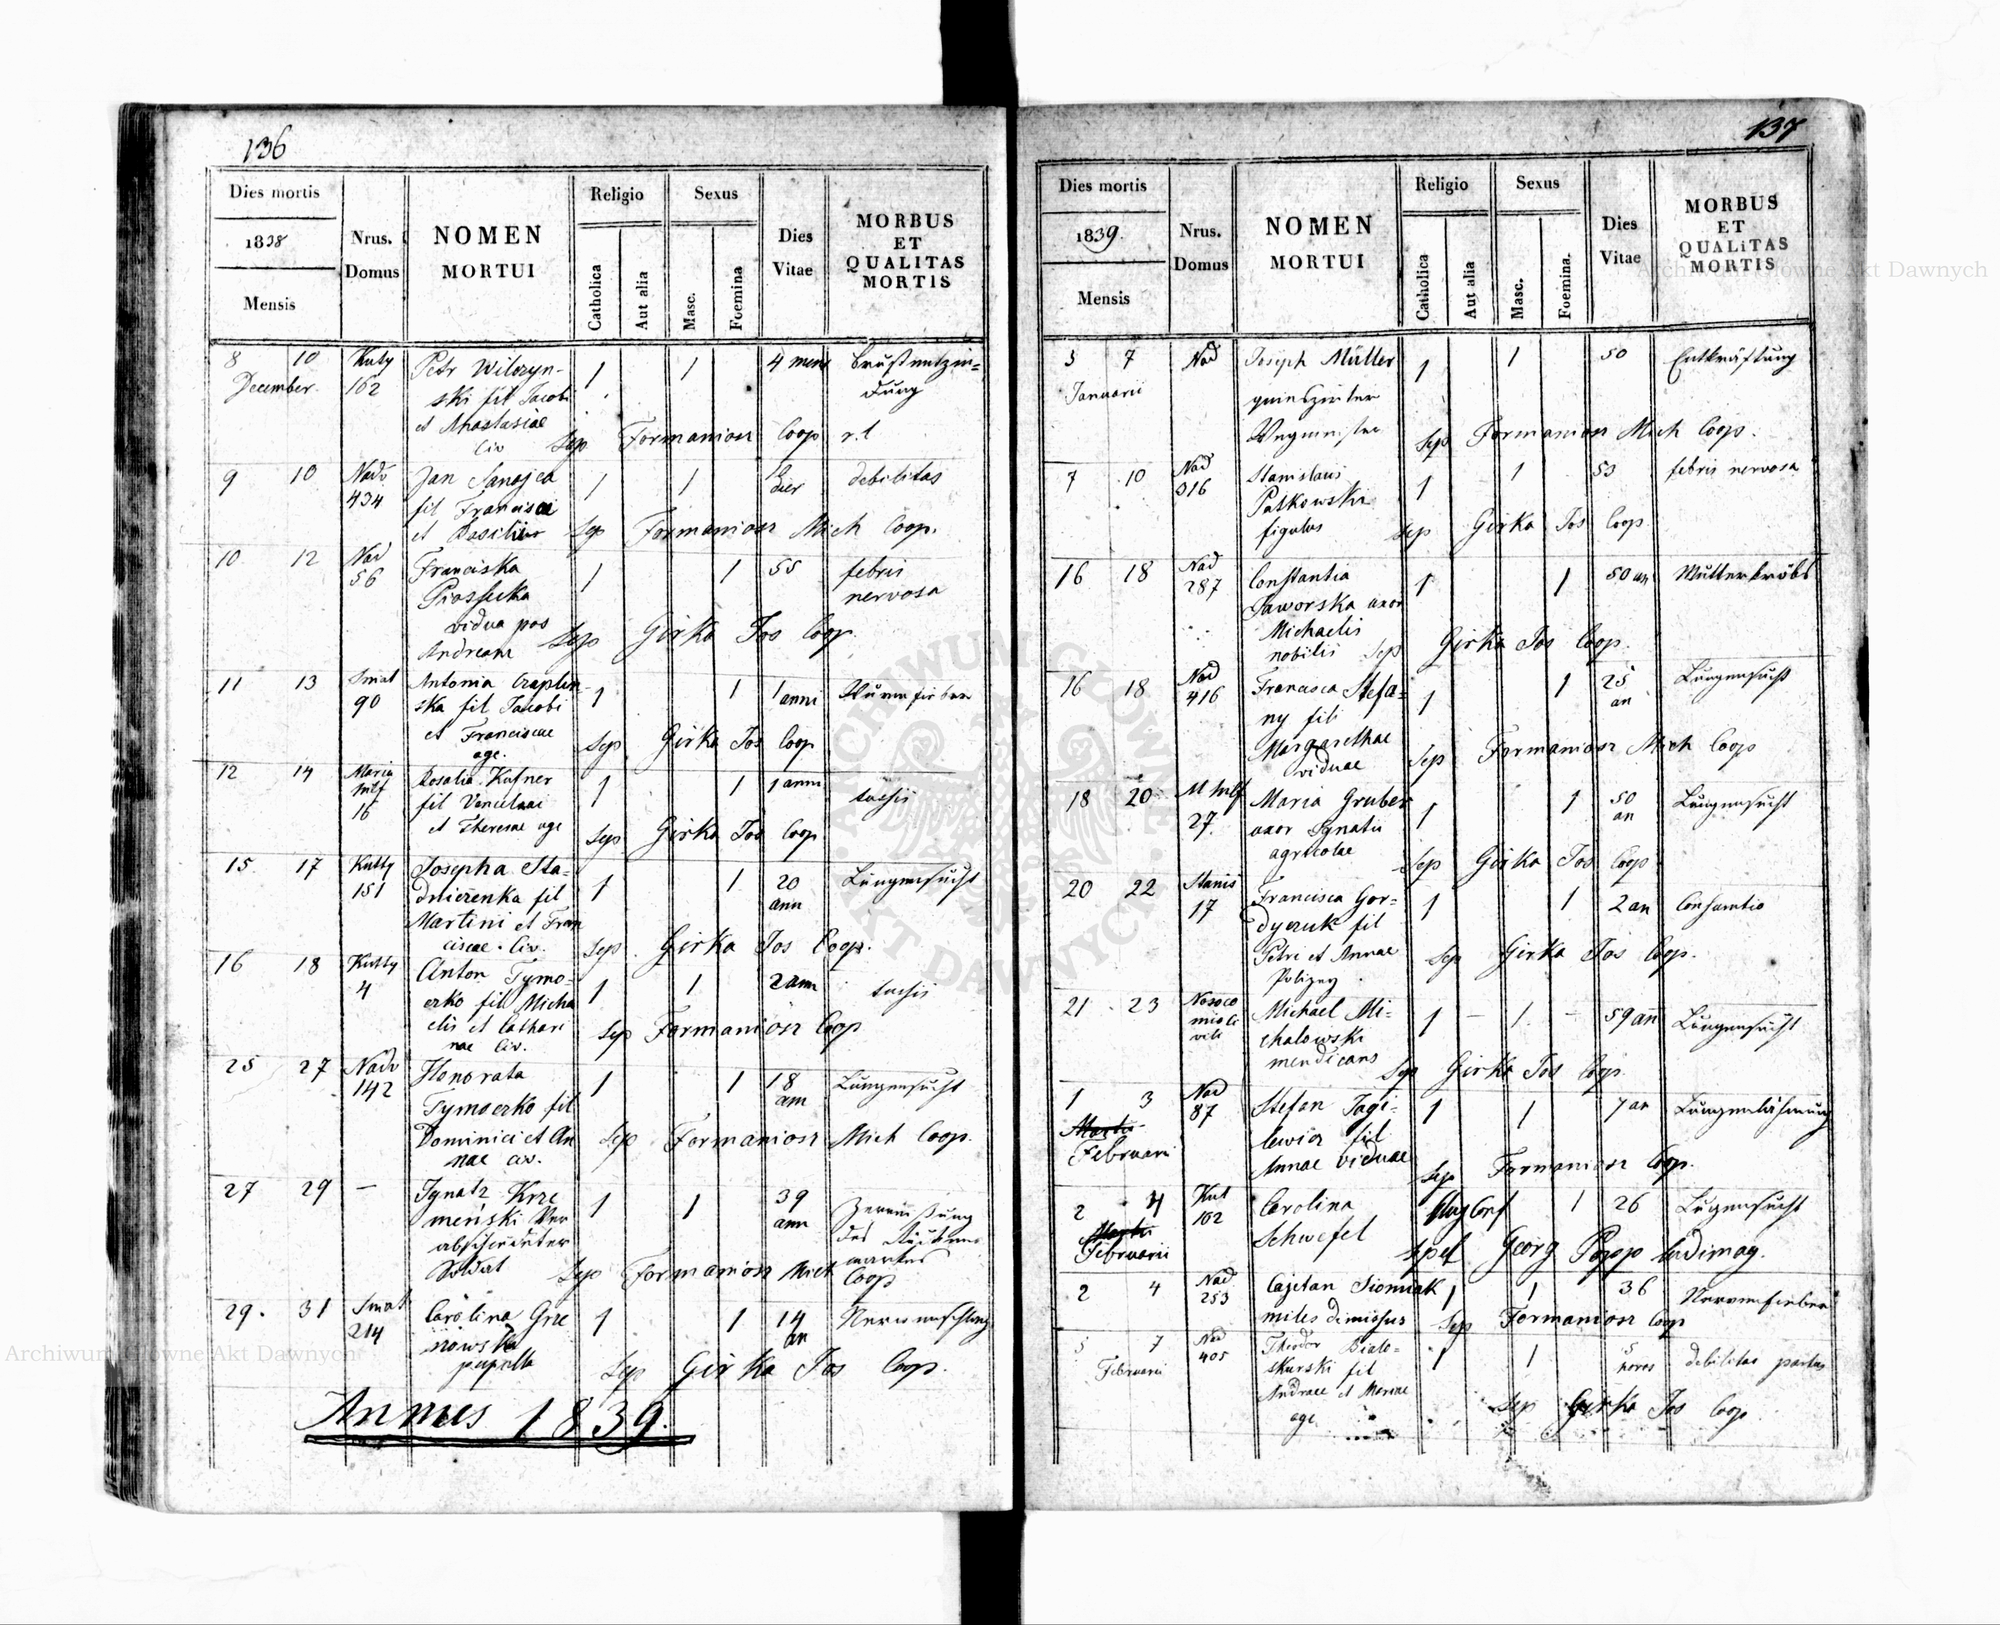 136
Dies mortis
1838
Mensis
Nrus.
Domus
NOMEN
MORTUI
Religio
Catholica
Aut alia
Sexus
Masc.
Foemina
Dies
Vitae
MORBUS
ET
QUALITAS
MORTIS
8 10 Kuty Petr Wilczyn- 1 1 4 mens Brustentzin=
December 162 ski fil Jacobi dung
et Anastasiae
civ Sep Formaniosz Coop r.l
9 10 Nadv Jan 1 1 debilitas
434 fil Francisci dier
et Basilis Sep Formaniosz Mich Coop.
10 12 Nad Franciska 1 1 55 febris
56 nervosa
vidua pos
Andream Sep Girka Jos Coop.
11 13 Smat Antonia Czaplin- 1 1 1 anni Wurmfieber
90 ska fil Jacobi
et Franciscae
age. Sep Girka Jos Coop
12 14 Maria Rosalia Kufner 1 1 1 anni tussis
hilf fil Venceslai
16 et Theresae age
Sep Girka Jos Coop
15 17 Kutty Josepha Sta- 1 1 20 Lungensucht
151 dnicrenka fil ann
Martini et Fran
ciscae. Civ. Sep Girka Jos Coop.
16 18 Kutty Anton Tymo- 1 1 2 ann tussis
4 erko fil Micha
elis et Cathari
nae Civ. Sep Formaniosz Coop
25 27 Nadv Honorata 1 1 18 Lungensucht
142 Tymoerko fil ann
Dominici et An Sep Formaniosz Mich Coop.
nae civ.
27 29 — Ignatz Krze 1 1 39
meński Ver ann des
abschiedeter
Soldat Sep Formaniosz Mich Coop
29. 31 Smat Carolina Grze 1 1 14
214 nowska an
pupilla Sep Girka Jos Coop.
Annus 1839.
137
Dies mortis
1839.
Mensis
Nrus.
Domus
NOMEN
MORTUI
Religio
Catholica
Aut alia
Sexus
Masc.
Foemina.
Dies
Vitae
MORBUS
ET
QUALITAS
MORTIS
5 7 Nad Joseph Müller 1 1 50 Entkräftung
Januarii
Wegmeister Sep Formaniosz Mich Coop.
7 10 Nad Stanislaus 1 1 53 febris nervosa
316 Patkowski
figulus Sep Girka Jos Coop
16 18 Nad Constantia 1 1 50 an Mutterkrebs
287 Jaworska uxor
Michaelis
nobilis Sep Girka Jos Coop.
16 18 Nad Francisca Stefa- 1 1 25 Lungensucht
416 ny fil an
Margarethae
viduae Sep Formaniosz Mich Coop
18 20 M hilf Maria Gruber 1 1 50 Lungensucht
27. uxor Ignatii an
agricolae Sep Girka Jos Coop
20 22 Stanis Francisca Gor- 1 1 2 an Consumtio
17 dyczuk fil
Petri et Annae Sep Girka Jos Coop.
21 23 Nosoco Michael Mi- 1 — 1. — 59 an Lungensucht
mio ci chalowski
vili mendicans Sep Girka Jos Coop.
1 3 Nad Stefan Jagi- 1 1 7 an Lungenlähmung
Martii 87 lewicz fil
Februarii Annae viduae Sep Formaniosz Coop.
2 4 Kut Carolina Aug Conf 1 26 Lungensucht
Martii 102 Schwefel
Februarii spel Georg Popp ludimag.
2 4 Nad Cajetan Sioniak 1 1 36 Nervenfieber
253 miles dimissus Sep Formaniosz Coop
5 7 Nad Theodor Biało- 1 1 5 debilitas partus
Februarii 405 skurski fil horas
Andreae et Mariae
age. Sep Girka Jos Coop
Archiwum Główne Akt Dawnych
Archiwum Główne Akt Dawnych
ARCHIWUM GŁÓWNE AKT DAWNYCH